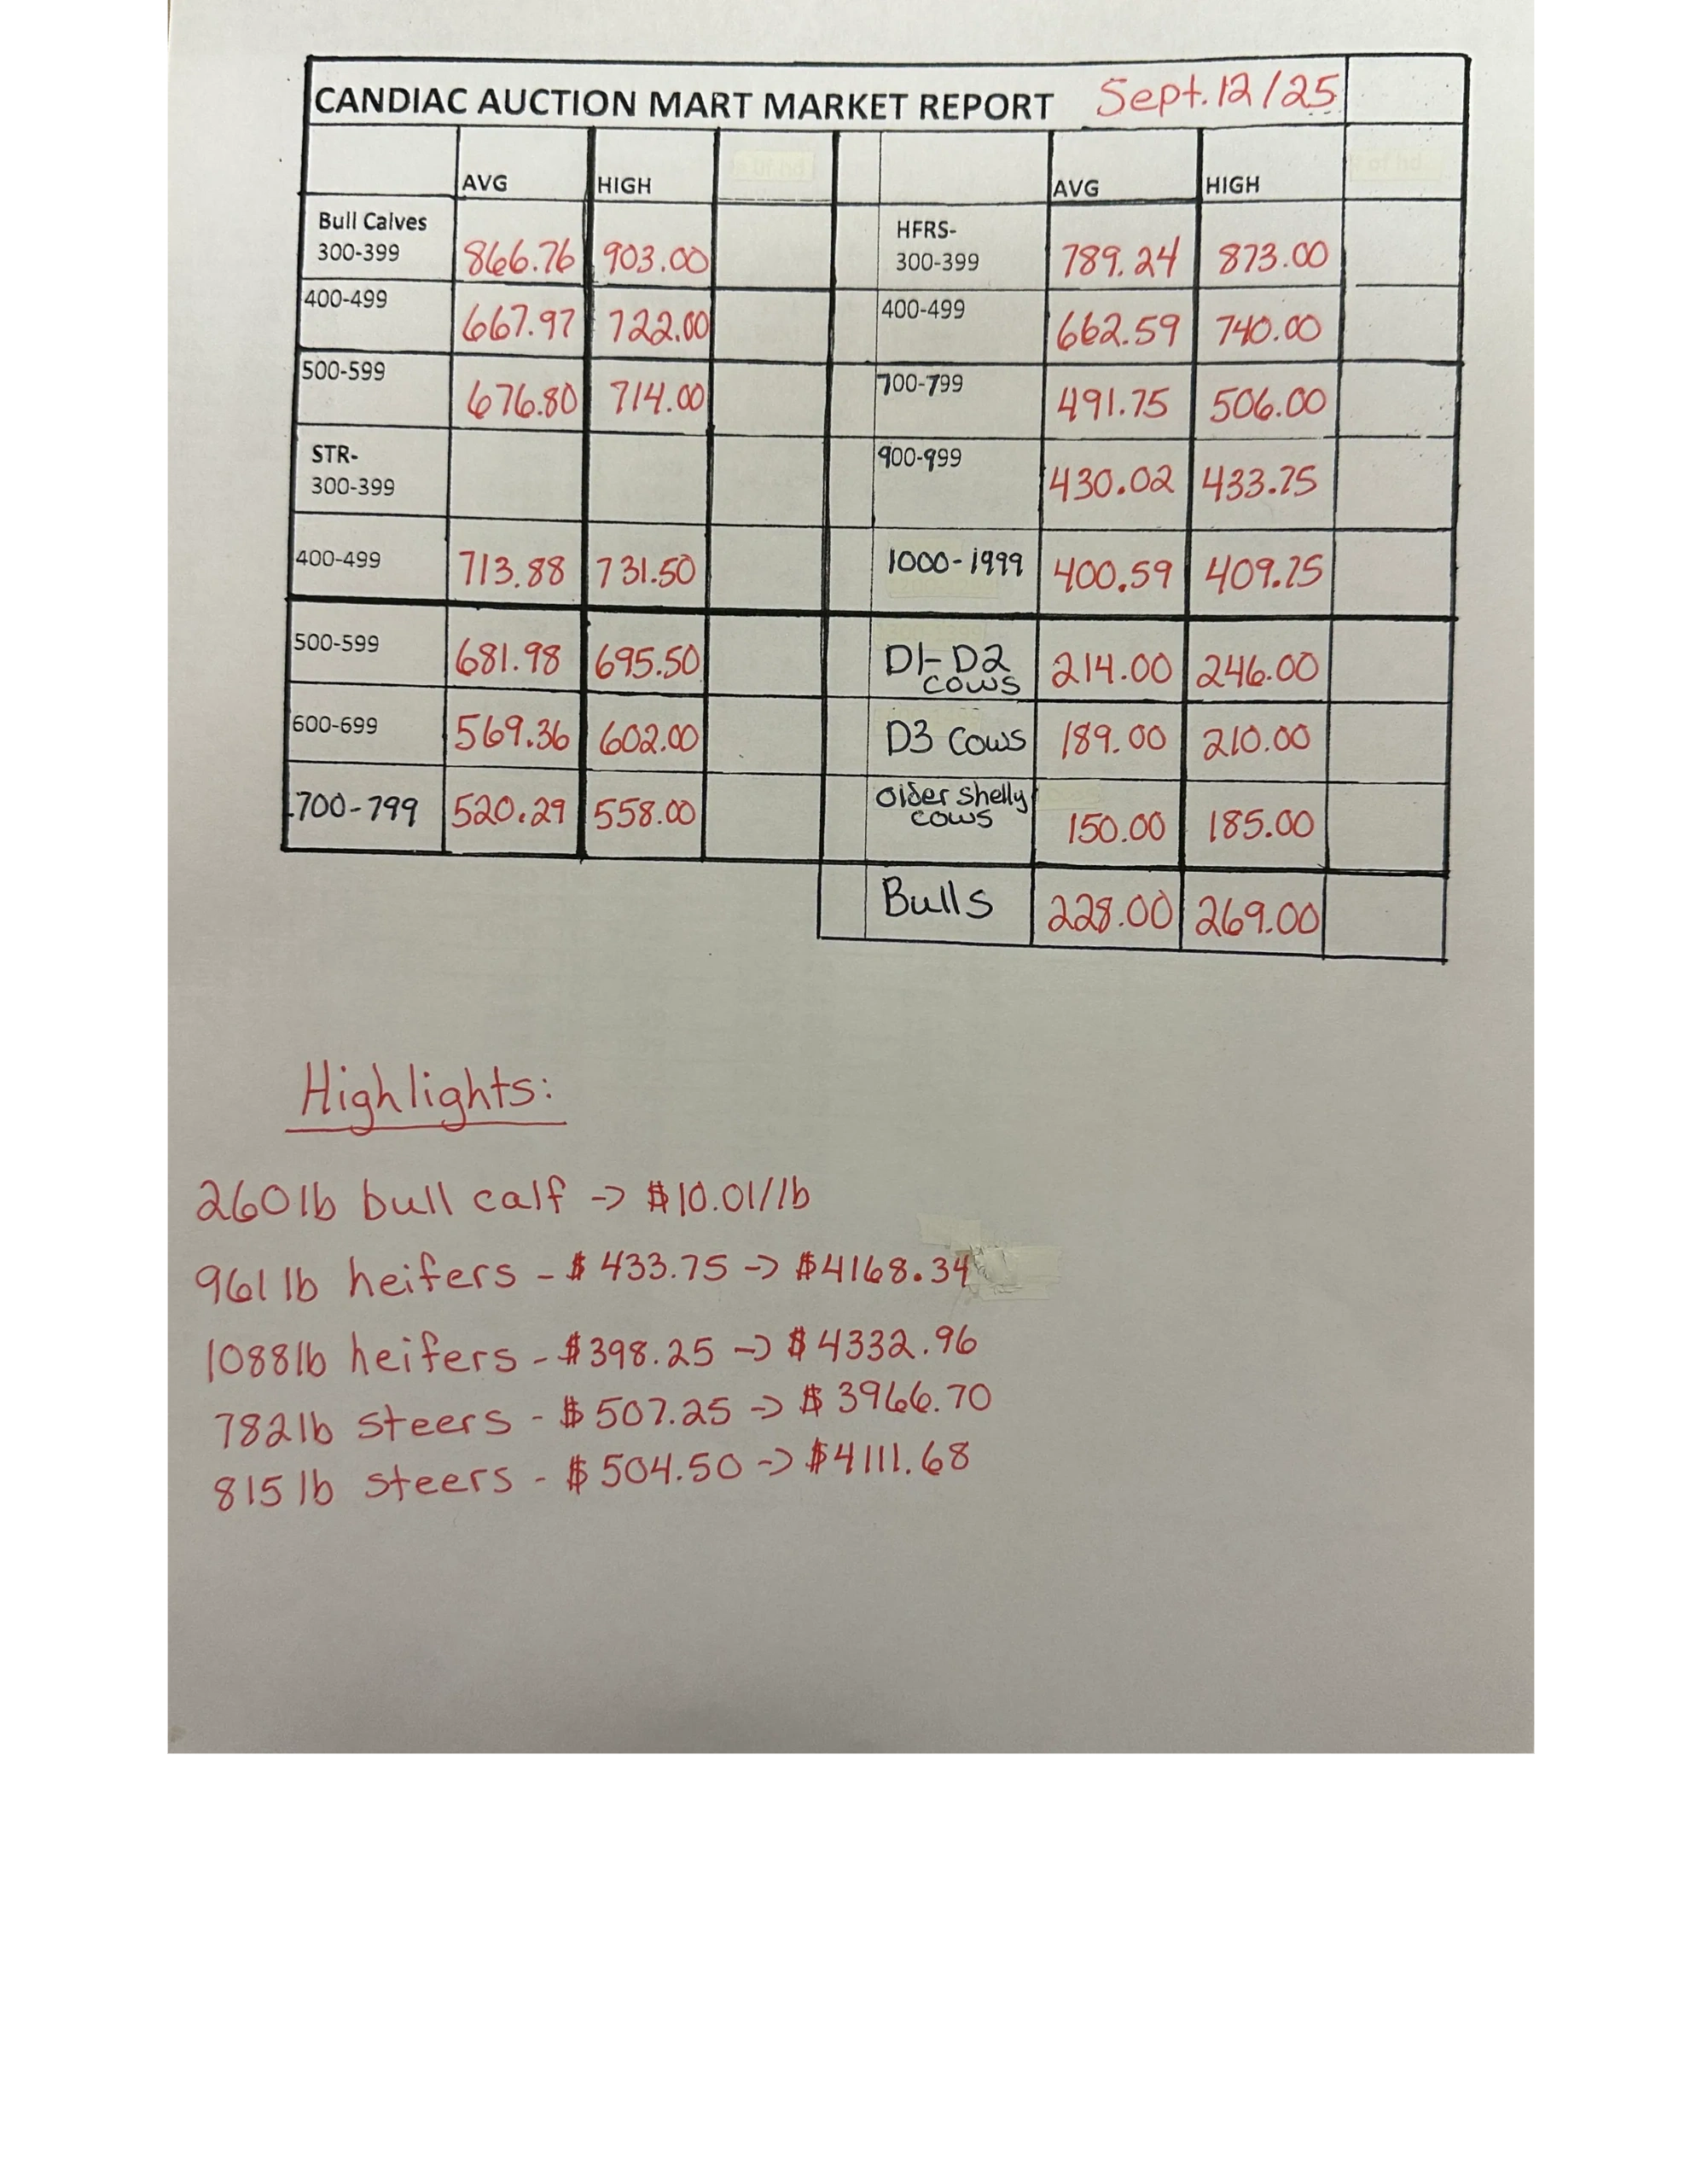 CANDIAC AUCTION MART MARKET REPORT Sept. 12/25
AVG HIGH AVG HIGH
Bull Calves 300-399 866.76 903.00 HFRS- 300-399 789.24 873.00
400-499 667.97 722.00 400-499 662.59 740.00
500-599 676.80 714.00 700-799 491.75 506.00
STR- 300-399 900-999 430.02 433.75
400-499 713.88 731.50 1000-1999 400.59 409.25
500-599 681.98 695.50 D1-D2 cows 214.00 246.00
600-699 569.36 602.00 D3 cows 189.00 210.00
700-799 520.29 558.00 older shelly cows 150.00 185.00
Bulls 228.00 269.00
Highlights:
260lb bull calf -> $10.01/lb
961 lb heifers - $433.75 -> $4168.34
1088lb heifers - $398.25 -> $4332.96
782lb steers - $507.25 -> $3966.70
815lb steers - $504.50 -> $4111.68